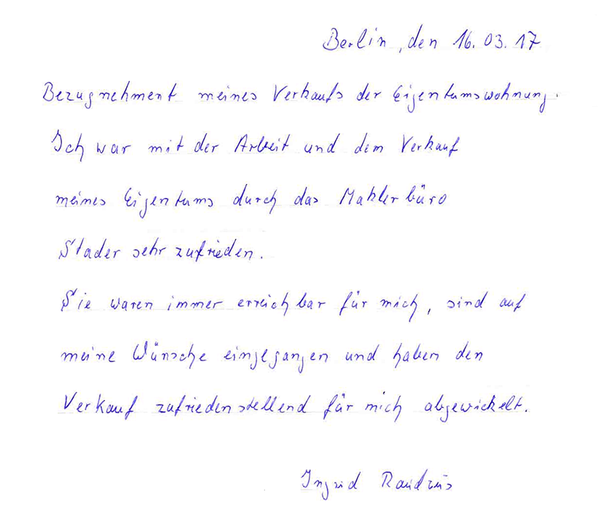 Berlin, den 16.03.17
Bezugnehment meines Verkaufs der Eigentumswohnung.
Ich war mit der Arbeit und dem Verkauf
meines Eigentums durch das Mahlerbüro
Stader sehr zufrieden.
Sie waren immer erreichbar für mich, sind auf
meine Wünsche eingegangen und haben den
Verkauf zufriedenstellend für mich abgewickelt.
Ingrid